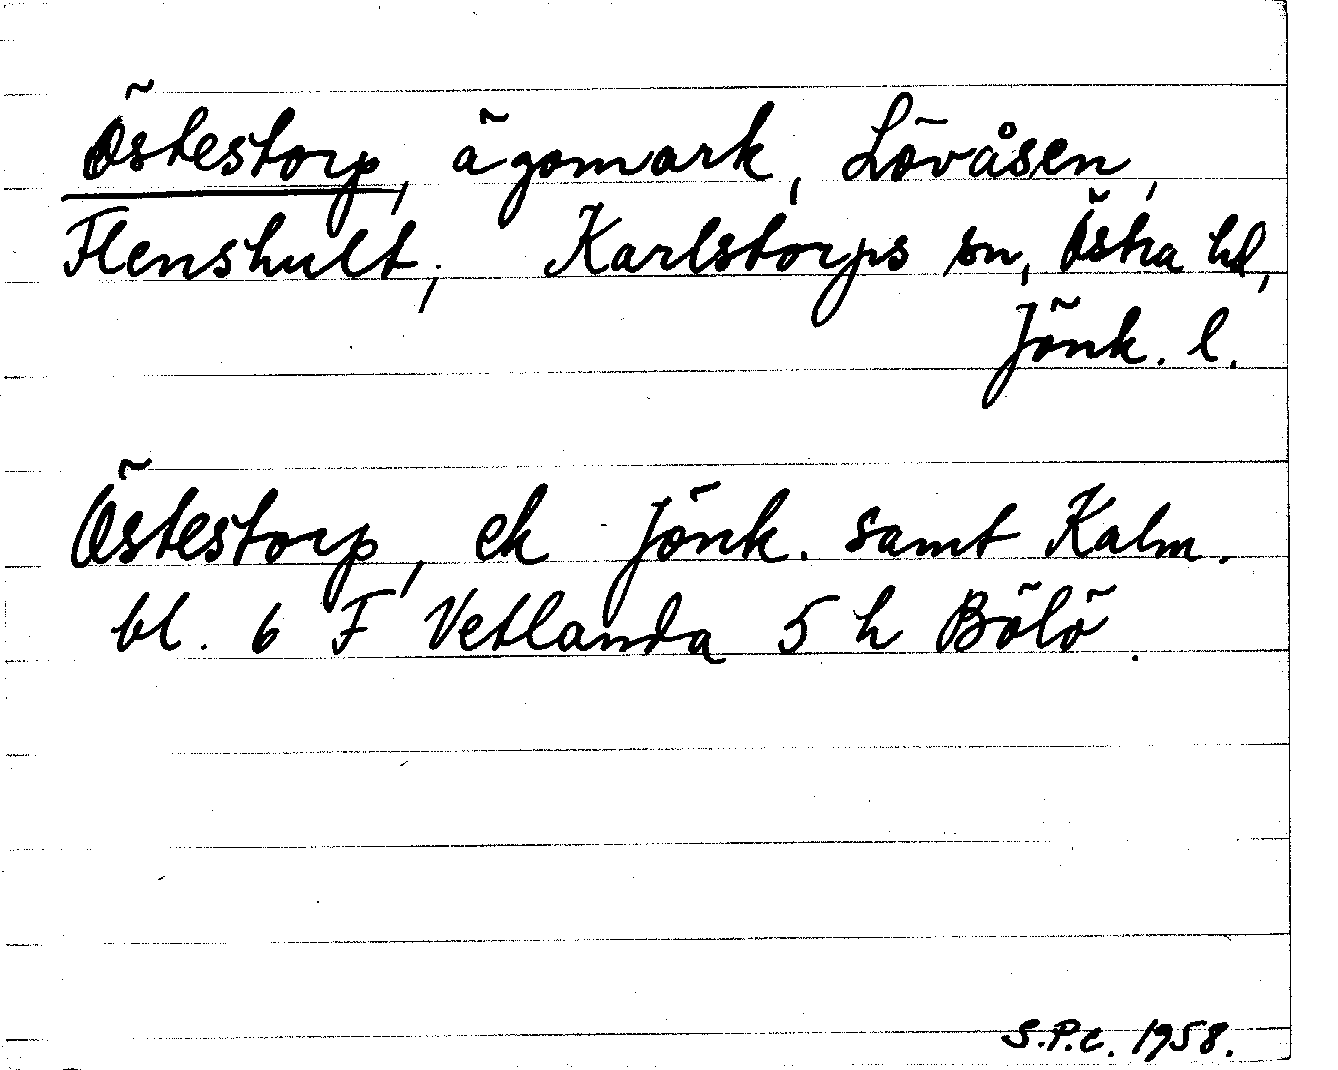 Östestorp, ägomark, Lövåsen,
Flenshult, Karlstorps sn, Östra hd,
Jönk. l.
Östestorp, ek Jönk. samt Kalm.
bl. 6 F Vetlanda 5 h Bölö.
S.P.C. 1958.